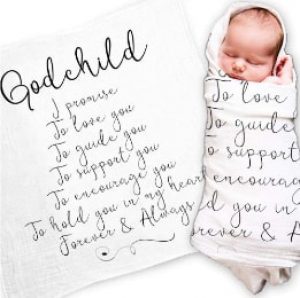 Godchild
I promise
To love you
To guide you
To support you
To encourage you
To hold you in my heart
Forever & Always
To love
To guide
To support
encourag
d you in
rever &